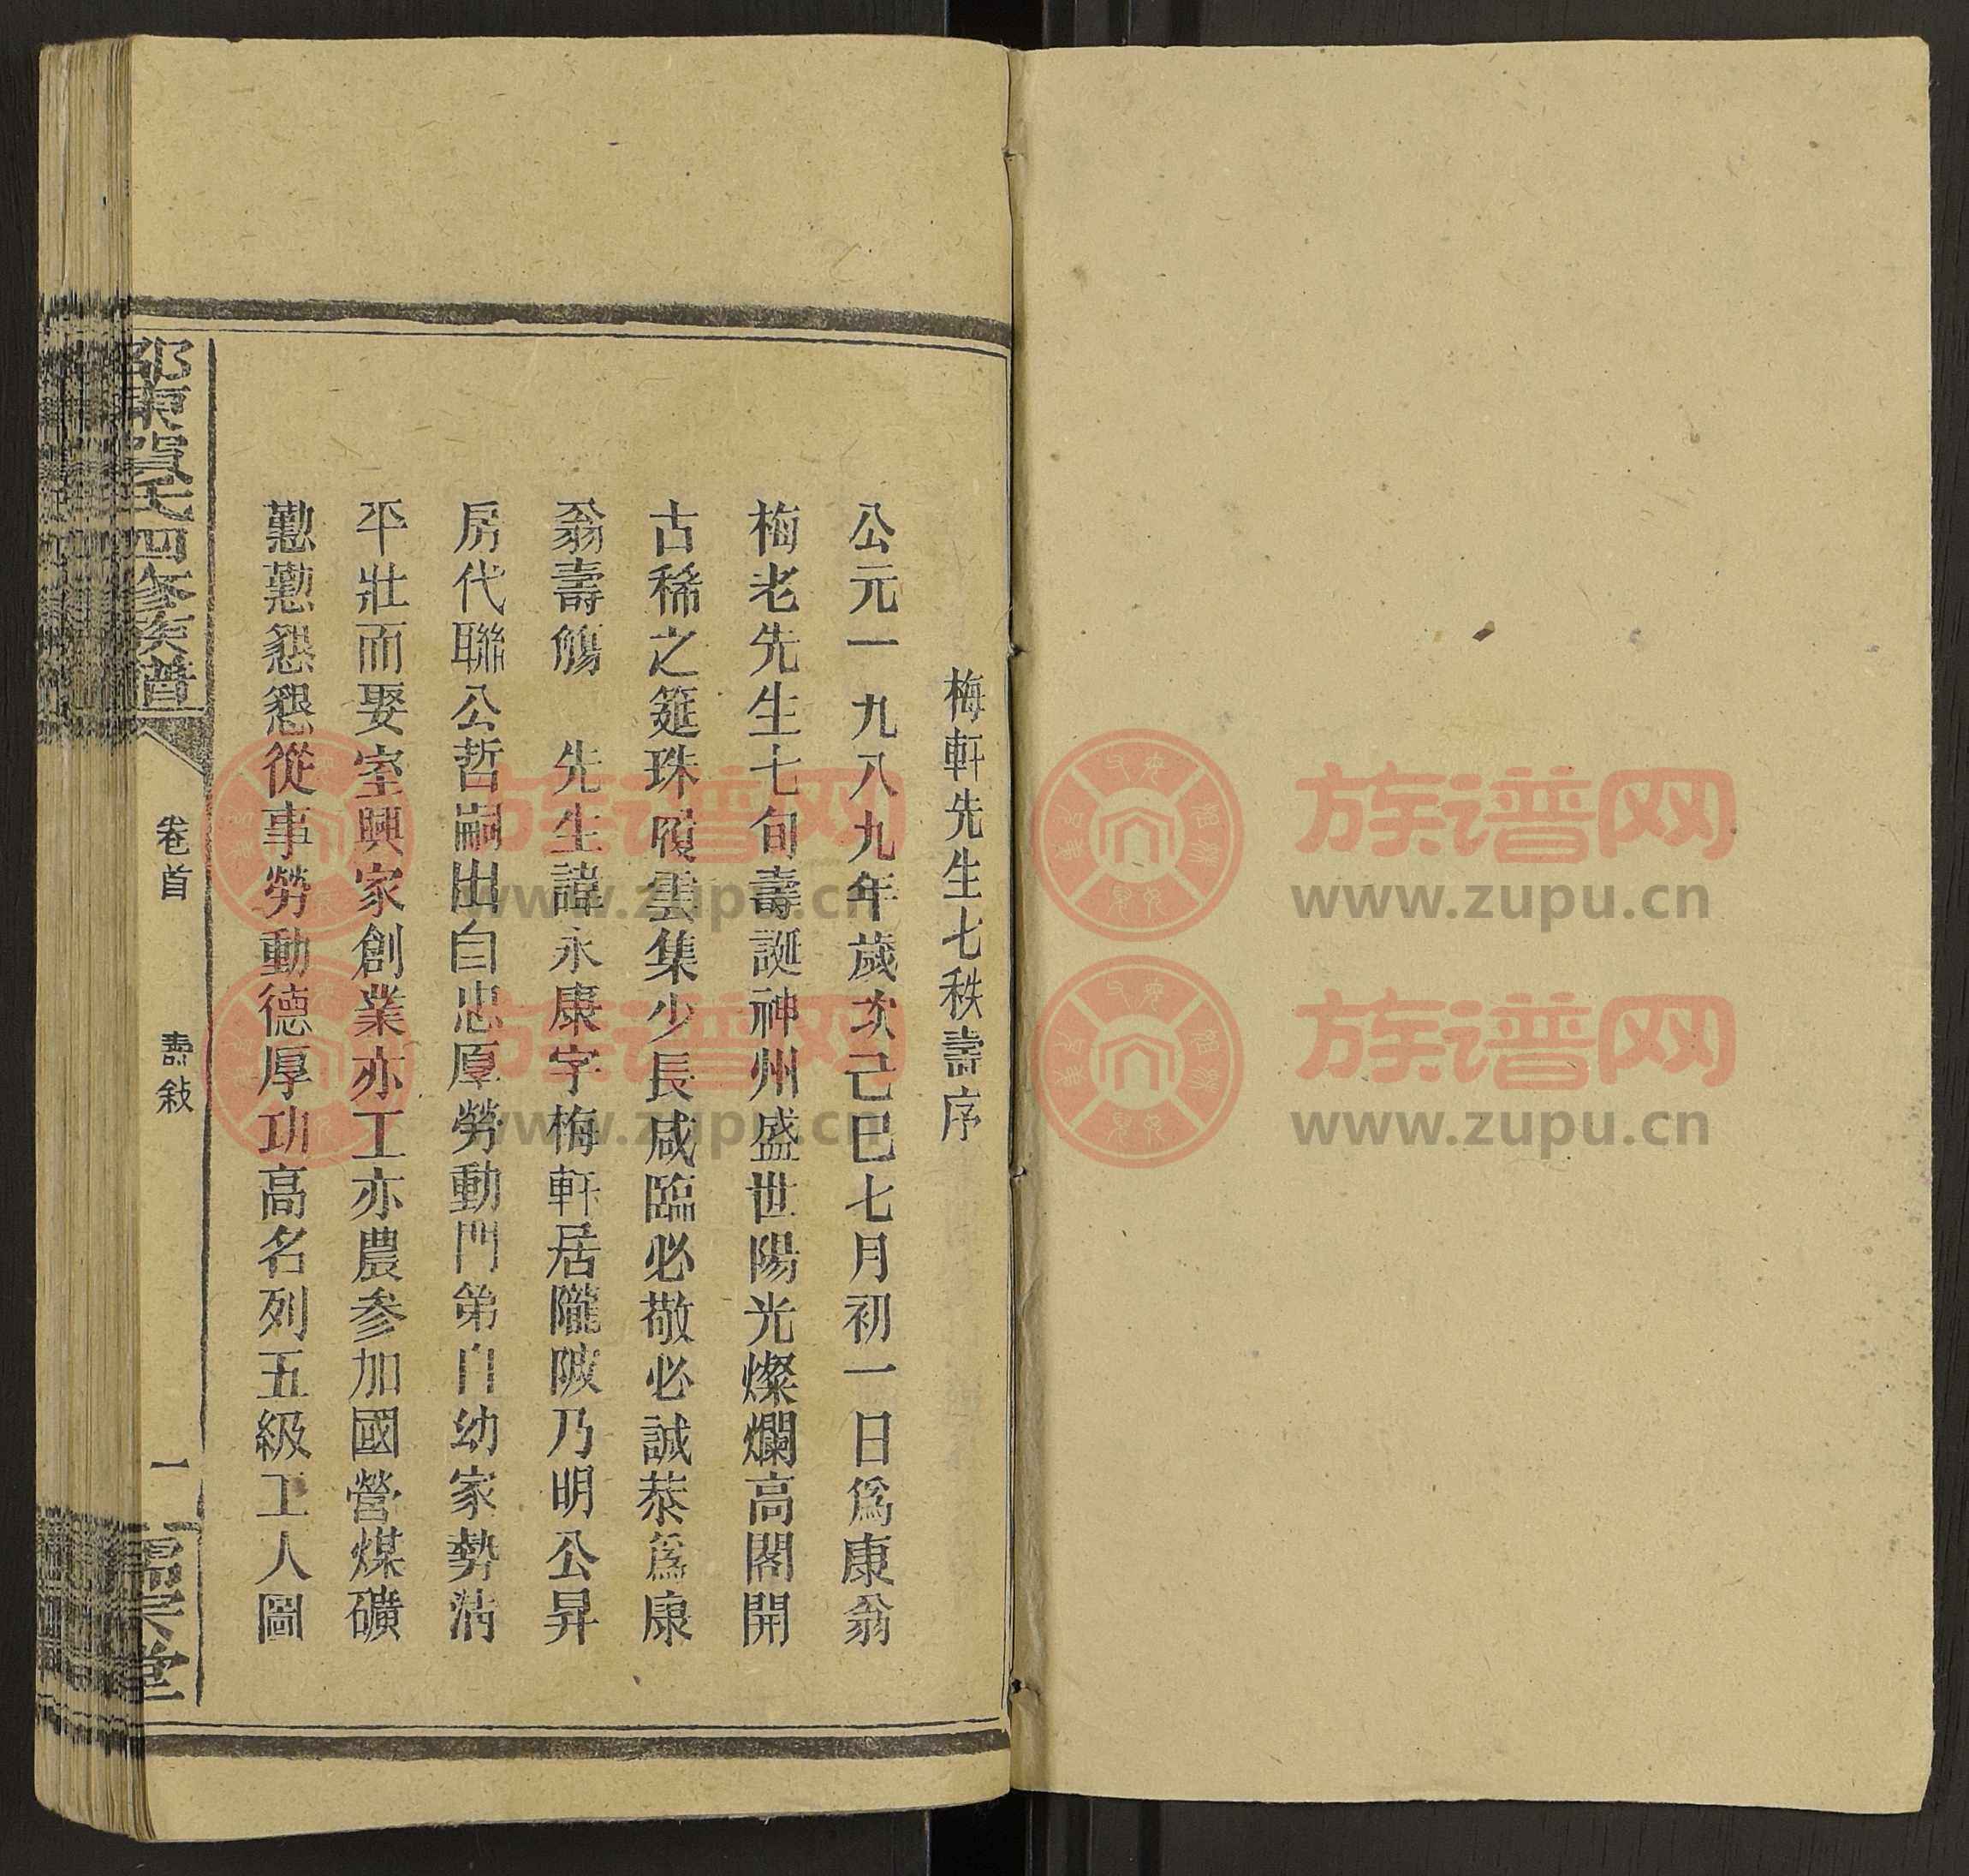 梅軒先生七秩壽序
公元一九八九年歲次己巳七月初一日爲康翁
梅老先生七旬壽誕神州盛世陽光燦爛高閣開
古稀之筵珠履雲集少長咸臨必敬必誠恭爲康
翁壽觴　先生諱永康字梅軒居隴陂乃明公昇
房代聯公哲嗣出自忠厚勞動門第自幼家勢清
平壯而娶室興家創業亦工亦農参加國營煤礦
懃懃懇懇從事勞動德厚功高名列五級工人圖
邵東賀氏四修族譜
卷首
壽敍
一
宗堂
族谱网
www.zupu.cn
族谱网
www.zupu.cn
族谱网
www.zupu.cn
族谱网
www.zupu.cn